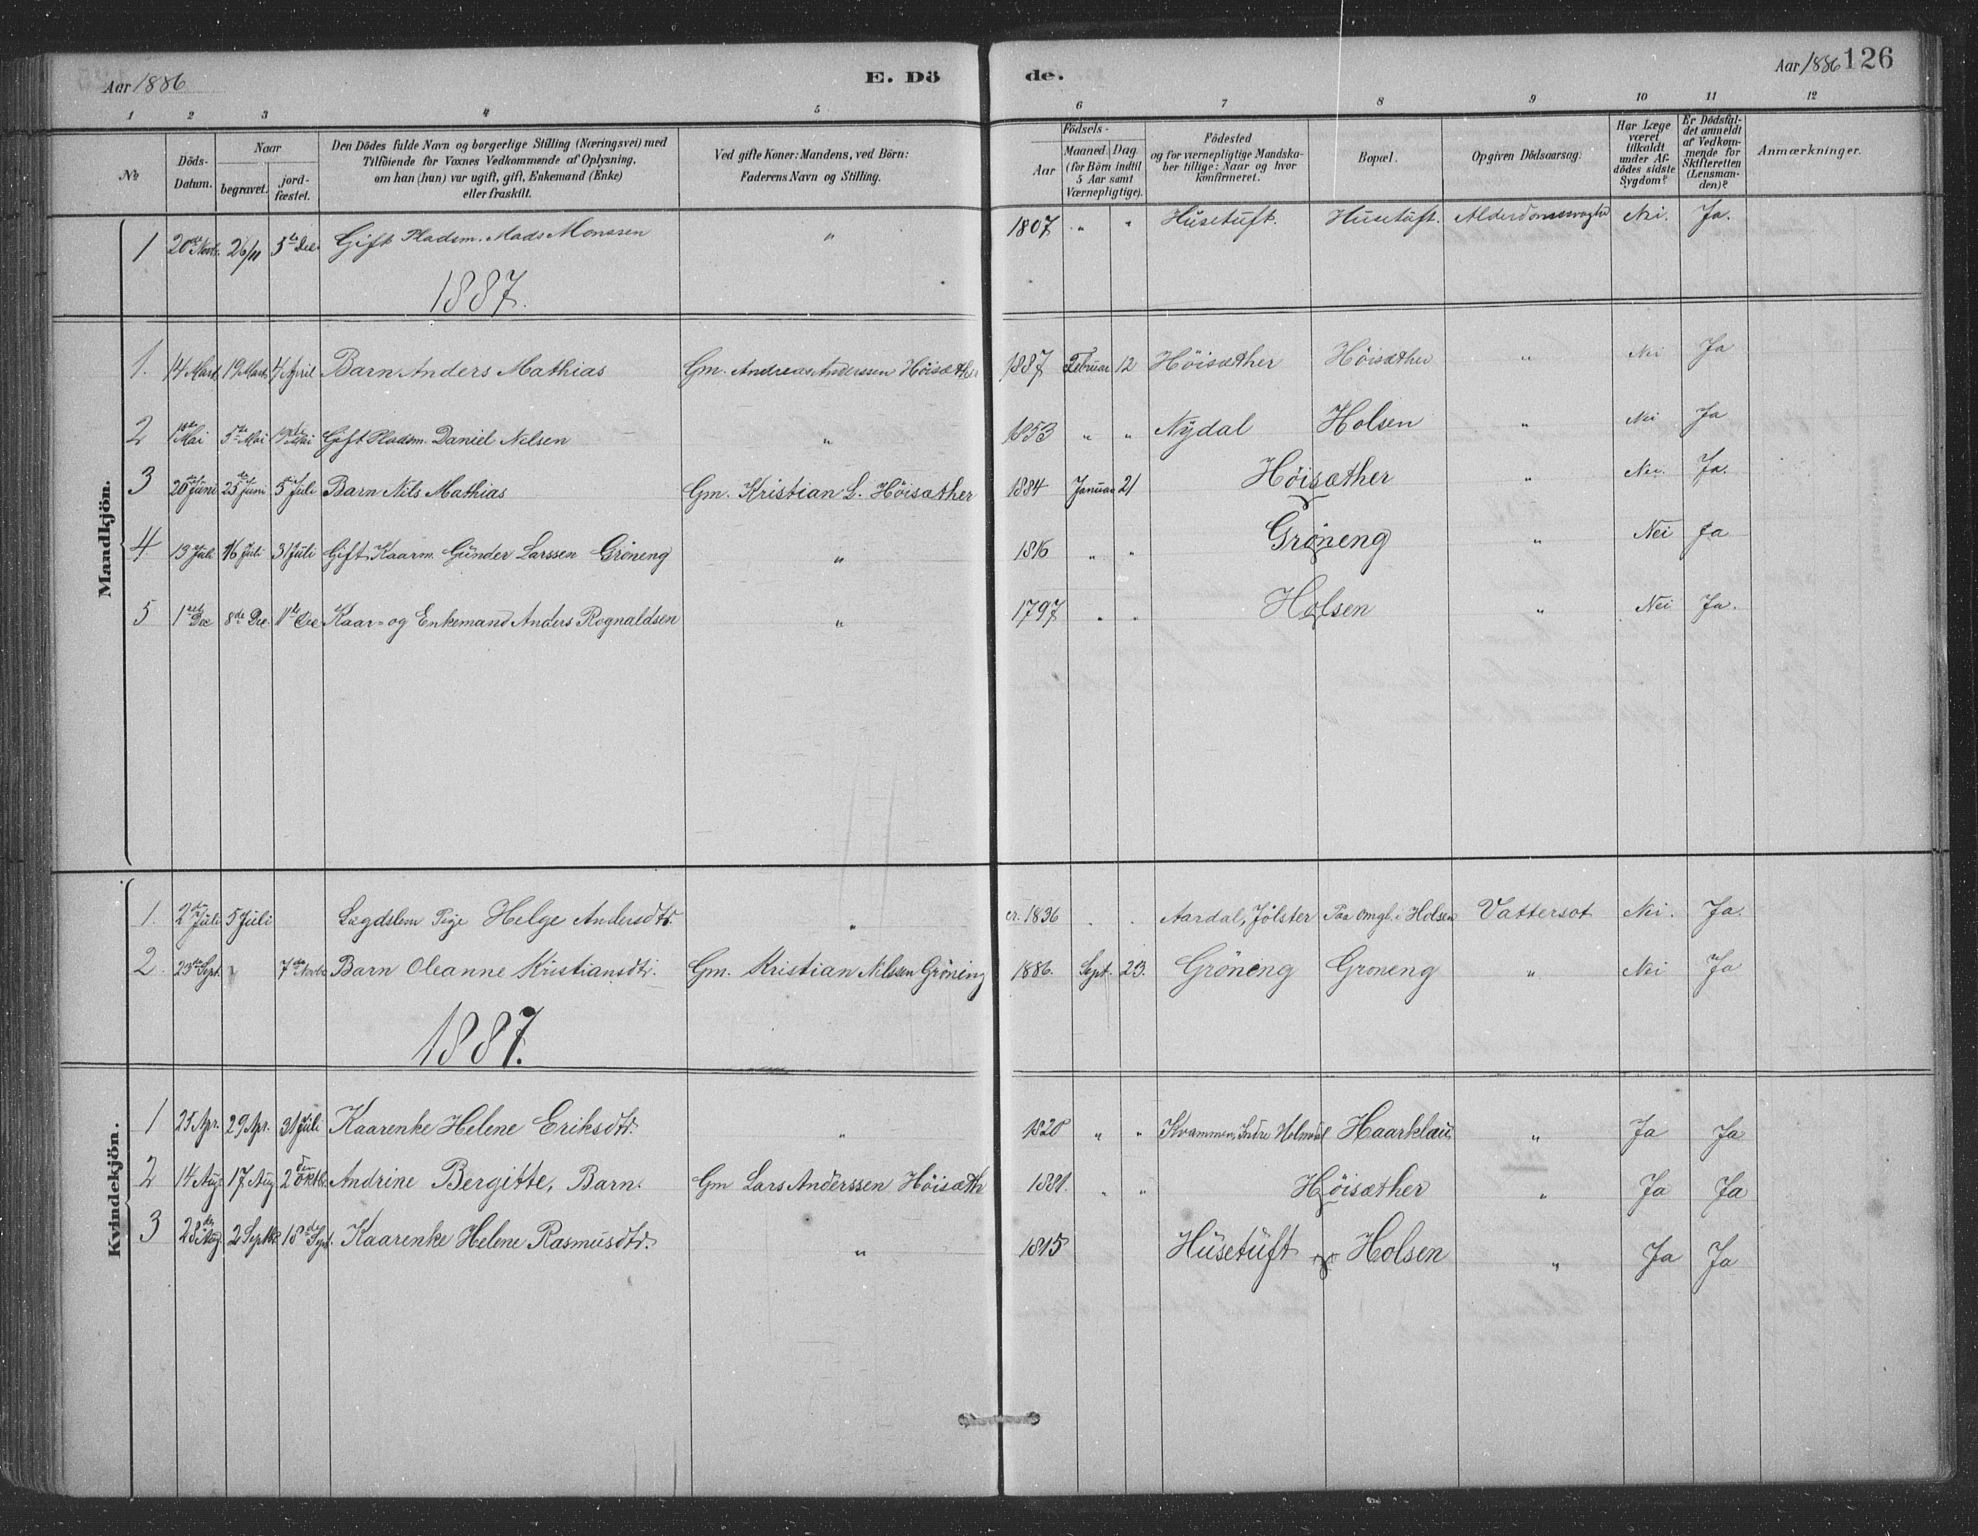 Aar 1886 E. Dö de. Aar 1886 126
1 2 3 4 5 6 7 8 9 10 11 12
No
Döds-Datum.
Naar
begravet.
jord-fæstet.
Den Dödes fulde Navn og borgerlige Stilling (Næringsvei) med
Tilföiende for Voxnes Vedkommende af Oplysning,
om han (hun) var ugift, gift, Enkemand (Enke)
eller fraskilt.
Ved gifte Koner: Mandens, ved Börn:
Faderens Navn og Stilling.
Födsels-
Aar
Maaned. Dag
(for Börn indtil
5 Aar samt
Værnepligtige).
Födested
og for værnepligtige Mandska-
ber tillige: Naar og hvor
konfirmeret.
Bopæl.
Opgiven Dödsaarsag.
Har Læge
været
tilkaldt
under Af-
dödes sidste
Sygdom?
Er Dödsfal-
det anmeldt
af Vedkom-
mende for
Skifteretten
(Lensman-
den)?
Anmærkninger.
Mandkjön.
1 20de Novb. 26/11 5te Dec. Gift Pladsm. Mads Monssen " 1807 " " Husetuft Husetuft. Nei. Ja.
1887.
1. 14 Mart. 19 Mart. 4 April Barn Anders Mathias Gm. Andreas Anderssen Höisæther 1887 Februar 12 Höisæther Höisæther " Nei Ja
2 1ste Mai 5te Mai Mai Gift Pladsm. Daniel Nilsen " 1853 " " Nydal Holsen " Nei Ja
3 20de Juni 25de Juni 5te Juli Barn Nils Mathias Gm. Kristian L. Höisæther 1884 Januar 21 Höisæther " Nei. Ja.
4 13 Juli 16 Juli 31 Juli Gift Kaarm. Gunder Larssen Gröneng " 1816 " " Gröneng " Nei Ja
5 1ste Dec 8de Dec. 11te Dec Kaar- og Enkemand Anders Rognaldsen " 1797 " " Holsen " Nei Ja.
Kvindekjön.
1. 2de Juli 5 Juli Lægdslem Pige Helge Andersdtr. " cr. 1836 " " Aardal, Jölster Paa omgl. i Holsen Vattersot Nei. Ja.
2. 23de Sept. " 7de Novbr. Barn Oleanne Kristiansdtr. Gm. Kristian Nilssen Gröning 1886. Sept. 23. Gröneng Groneng " Nei Ja
1887.
1 25 Apr. 29 Apr. 31 Juli Kaarenke Helene Eriksdtr. " 1820 " " Kvammen, Indre Holmedal Haarklau " Ja Ja
2 14 Aug. 17 Aug. 2den Oktbr. Andrine Bergitte, Barn. Gm Lars Anderssen Höisæth 1881. " " Höisæther " Ja Ja
3 28de Aug. 2 Septbr. 18de Sept. Kaarenke Helene Rasmusdtr. " 1815 Husetuft Holsen " Ja Ja